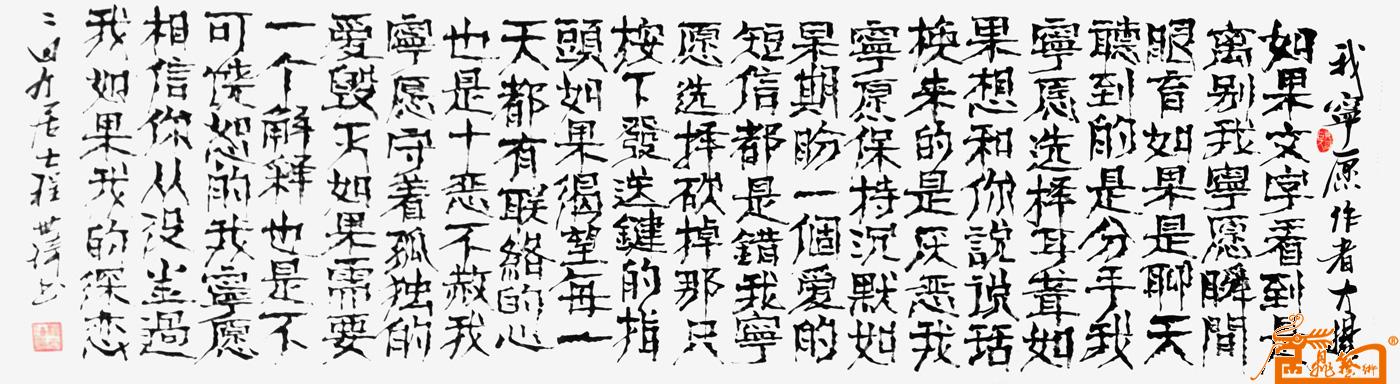 我寧愿作者大漠
如果文字看到是
离别我寧愿瞬間
眼盲如果是聊天
聽到的是分手我
寧愿选择耳聋如
果想和你說说话
换来的是厌恶我
寧愿保持沉默如
果期盼一個愛的
短信都是錯我寧
愿选择砍掉那只
按下發送鍵的指
頭如果渴望每一
天都有联絡的心
也是十恶不赦我
寧愿守着孤独的
愛毁灭如果需要
一个解释也是不
可饶恕的我寧愿
相信你从没走過
我如果我的深恋